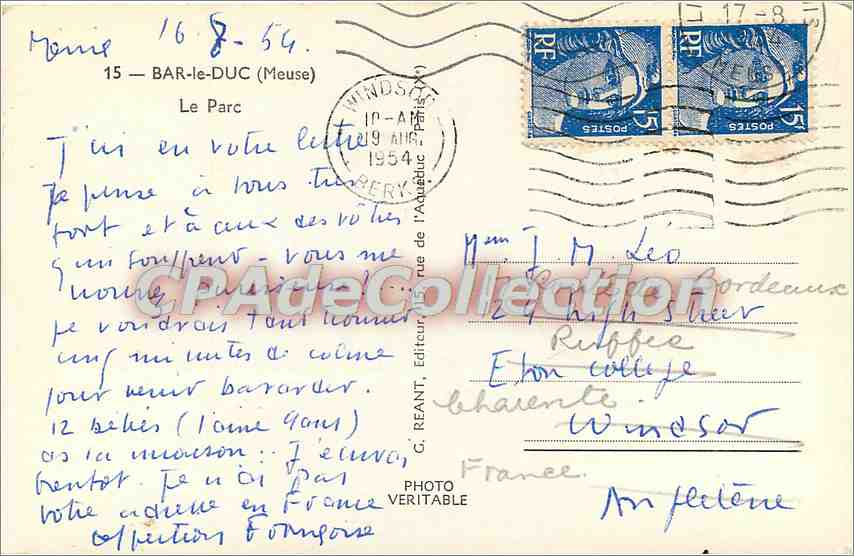 16.8-54.
15 — BAR-le-DUC (Meuse)
Le Parc
J'ai eu votre lettre
Je pense à vous très
fort et à ceux des vôtres
qui souffrent - vous me
je voudrais tant trouver
cinq minutes de calme
pour venir bavarder.
12 bébés (l'ainé 9 ans)
à la maison. J'écrirai
bientôt. Je n'ai pas
votre adresse en France
affection Françoise
G. REANT, Editeur, 15, rue de l'Aqueduc - Paris (Xe)
PHOTO
VERITABLE
RF
15
POSTES
RF
15
POSTES
17-8
WINDSOR
10-AM
19 AUG
1954
BERKS
J. M. Leo
Route de Bordeaux
24 high street
Ruffec
Eton college
Charente.
Windsor
France
Angleterre
CPAdeCollection